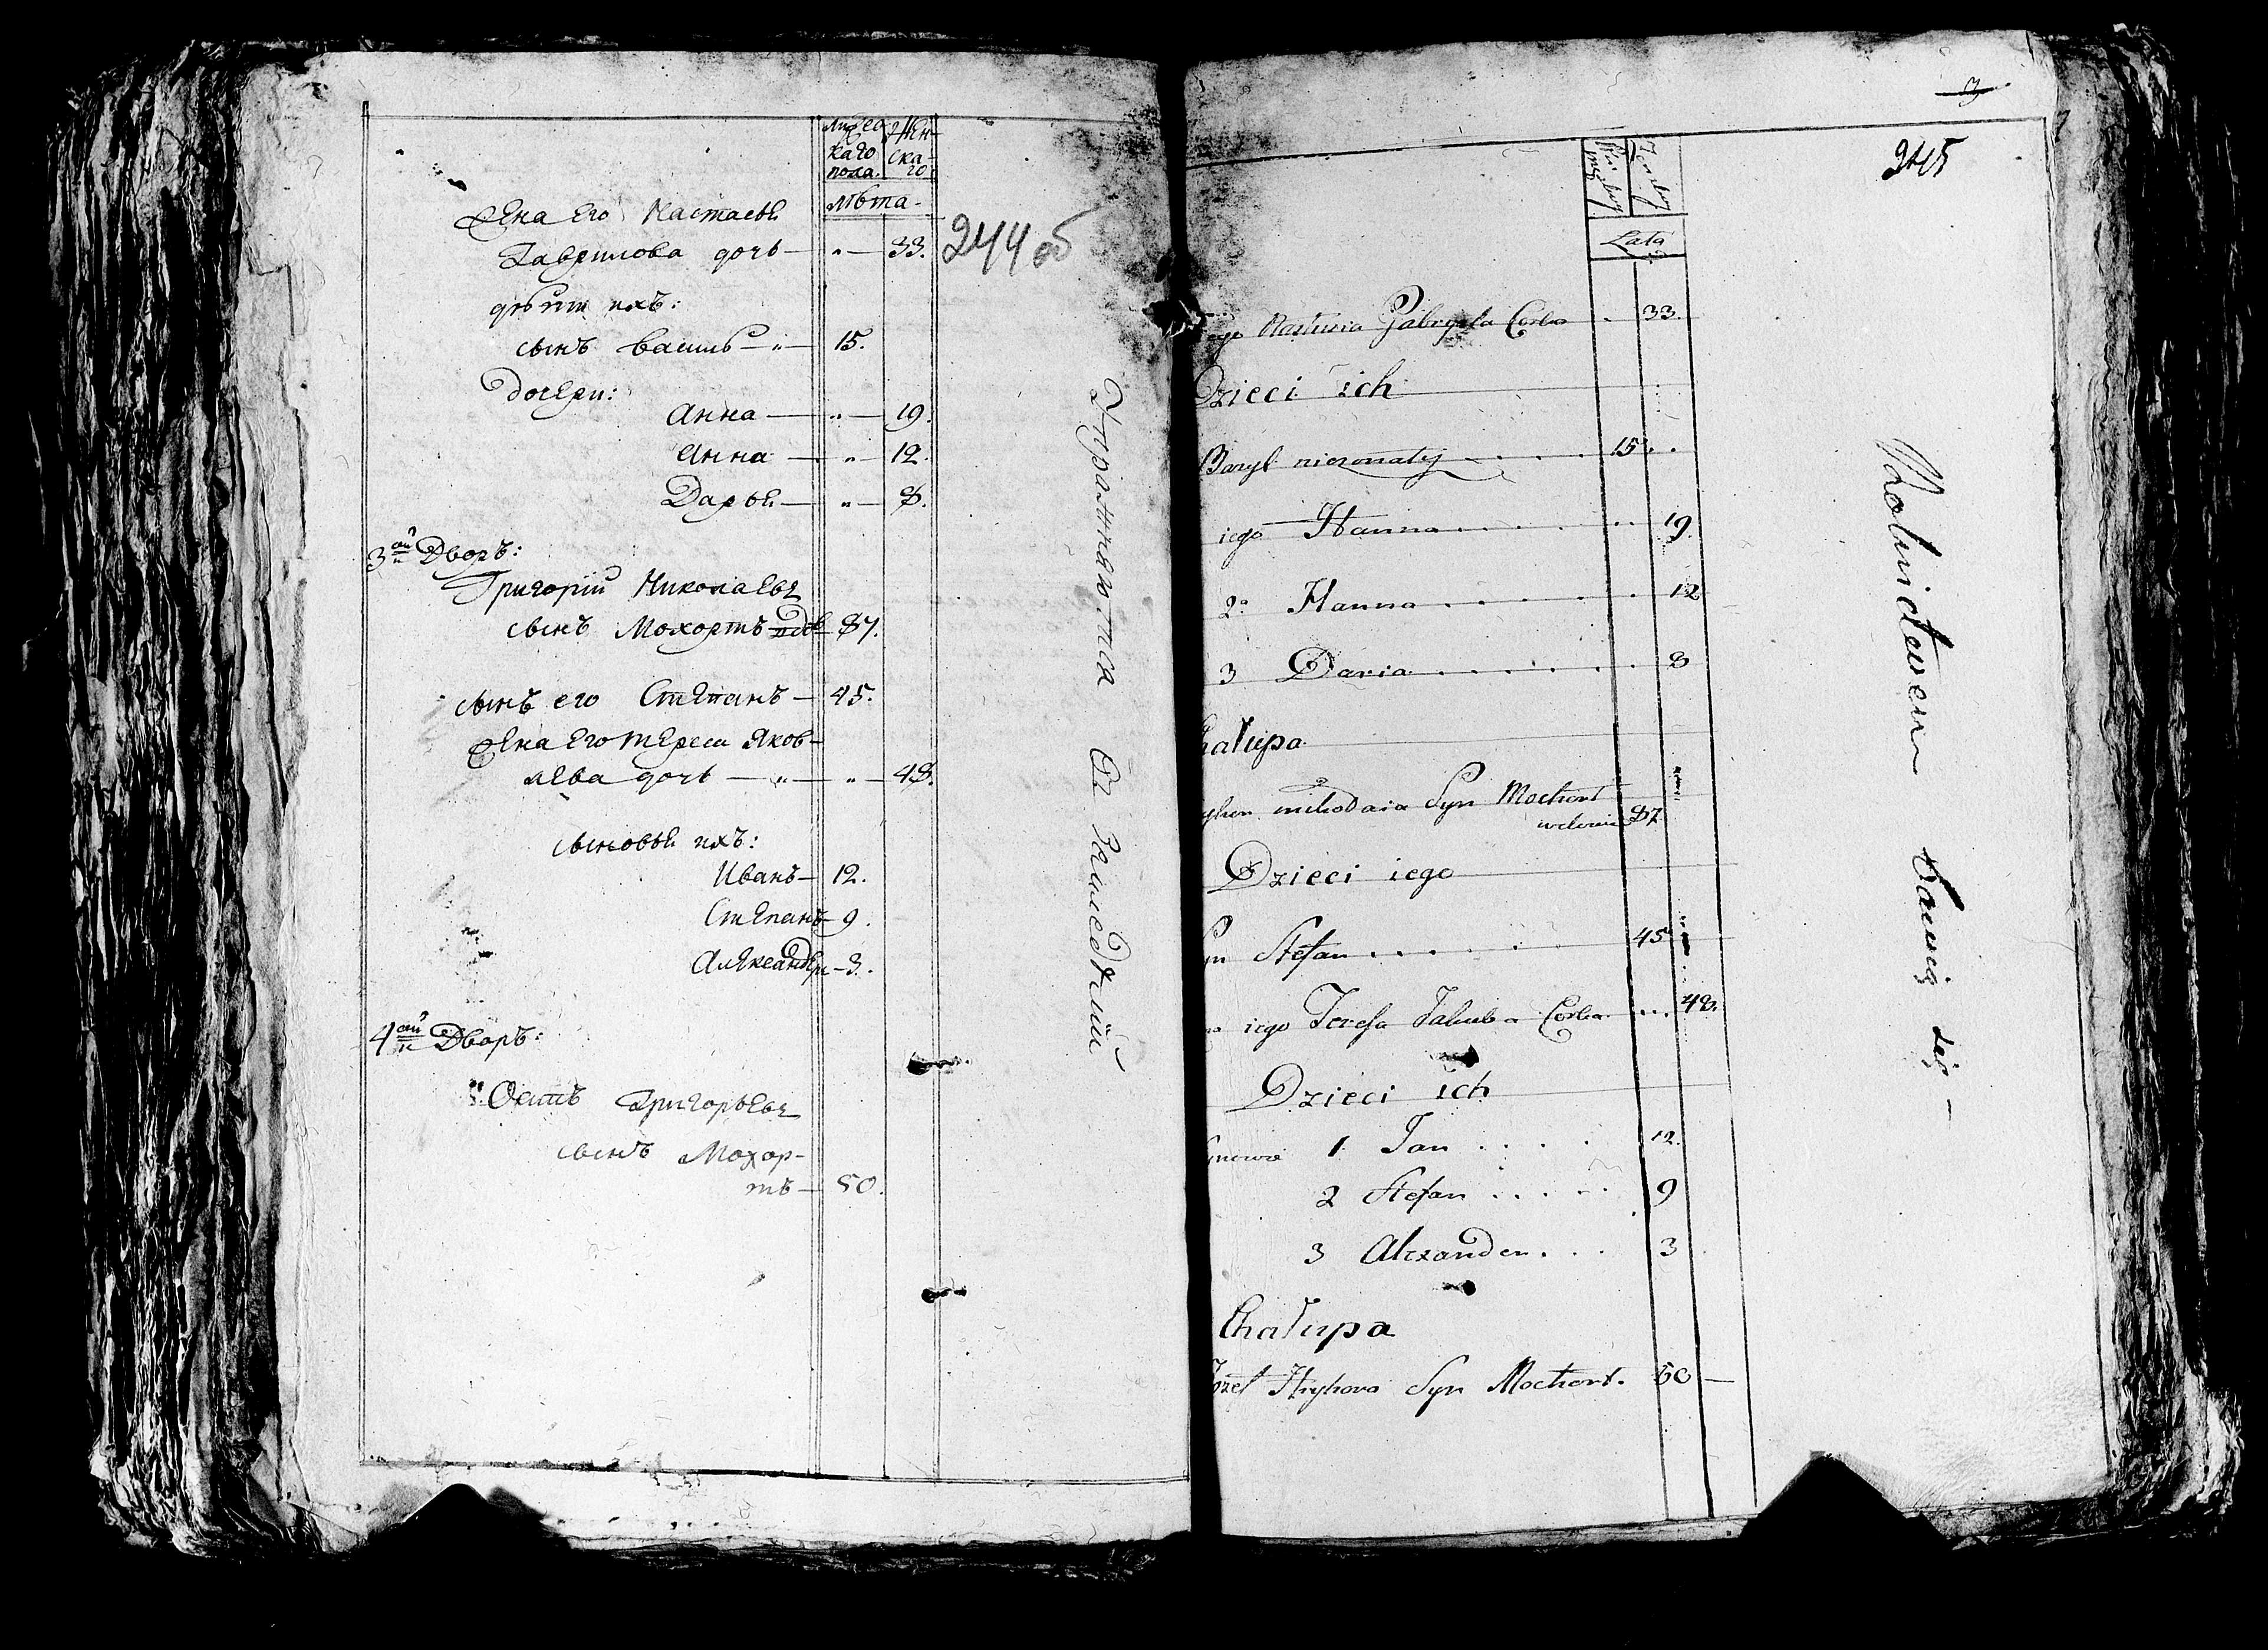 Мужес-
каго
пола.
Жен-
ска-
го.
лѣта.
244 об
Жена Его Настасья
Гаврилова дочь — „ — 33.
дѣти ихъ:
сынъ Василь — „ — 15.
Дочери:
Анна — „ — 19.
Анна — „ — 12.
Дарья — „ — 8.
3ай Дворъ:
Григорій Николаевъ
сынъ Мохортъ вдов 87.
сынъ его Степанъ — 45.
Жена Его Тереса Яков-
лева дочь — „ — „ — 48.
сыновья ихъ:
Иванъ — 12.
Степанъ — 9.
Александръ — 3.
4ай Дворъ:
Осипъ Григорьевъ
сынъ Мохор-
тъ — 50.
Упражняются въ земледѣлии
3
245
Męski
Żeńsky
Lata
ego Nastusia Gabryela Corka . 33.
Dzieci ich
Bazyl nieżonaty . . . . 15 . .
iego Hanna . . . . . . . 19.
2o Hanna . . . . . . . 12
3 Daria . . . . . . . 8
hałupa
yhor mikołaia Syn Mochort
wdowiec 87
Dzieci iego
yn Stefan . . . . . 45
na iego Teresa Jakuba Corka . . . 48.
Dzieci ich
ynowie 1 Jan . . . . 12.
2 Stefan . . . . . 9
3 Alexander . . . 3
Chałupa
Jozef Hryhora Syn Mochort. 50 —
Rolnictwem bawią się —